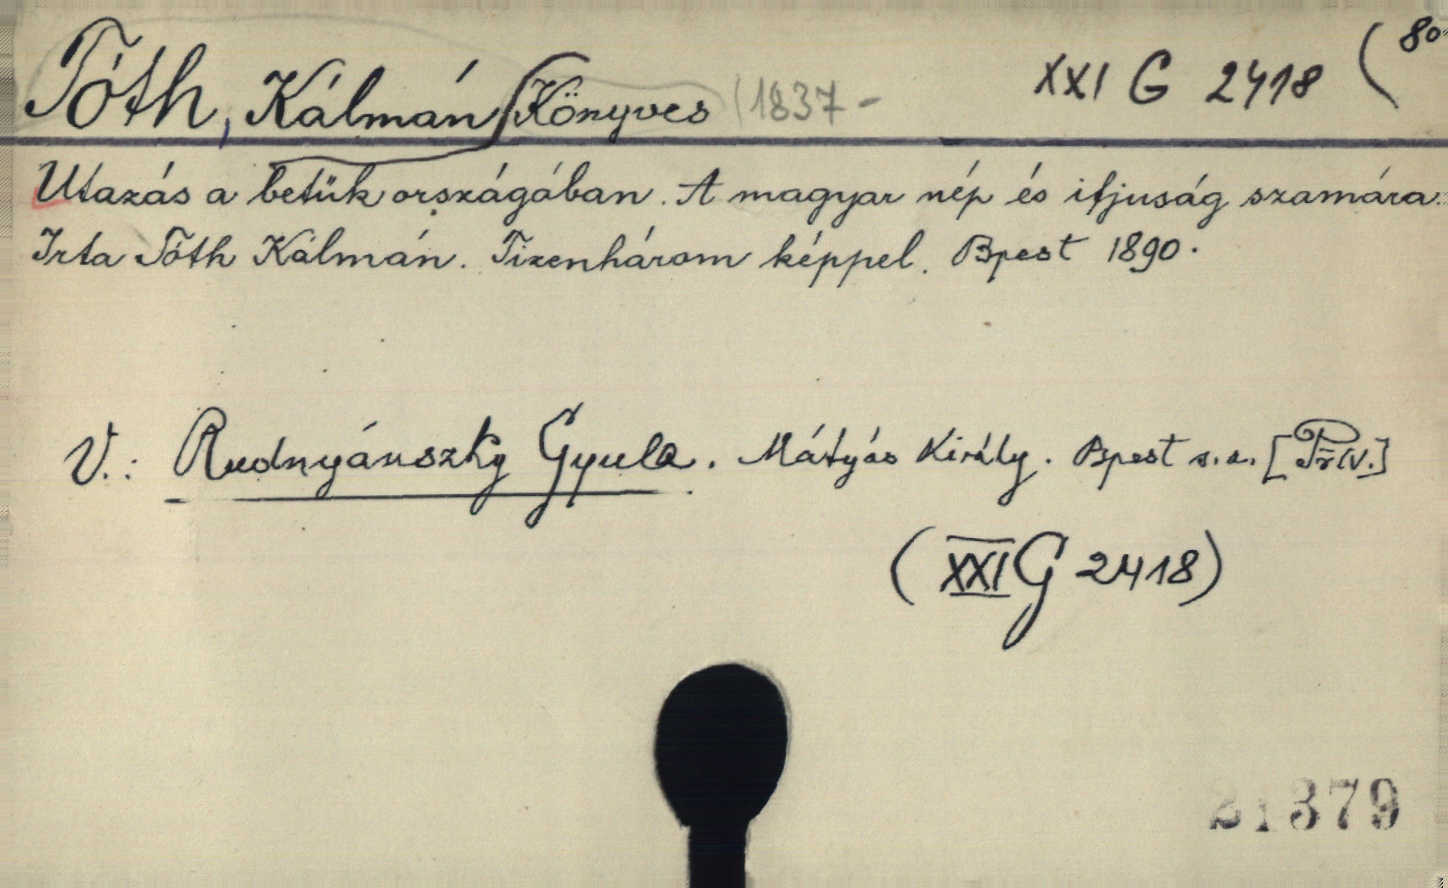 Tóth, Kálmán Könyves (1837 - XXI G 2418 (80
Utazás a betük országában. A magyar nép és ifjuság számára.
Irta Tóth Kálmán. Tizenhárom képpel. Bpest 1890.
V.: Rudnyánszky Gyula. Mátyás Király. Bpest s.a.
(XXI G 2418)
21379